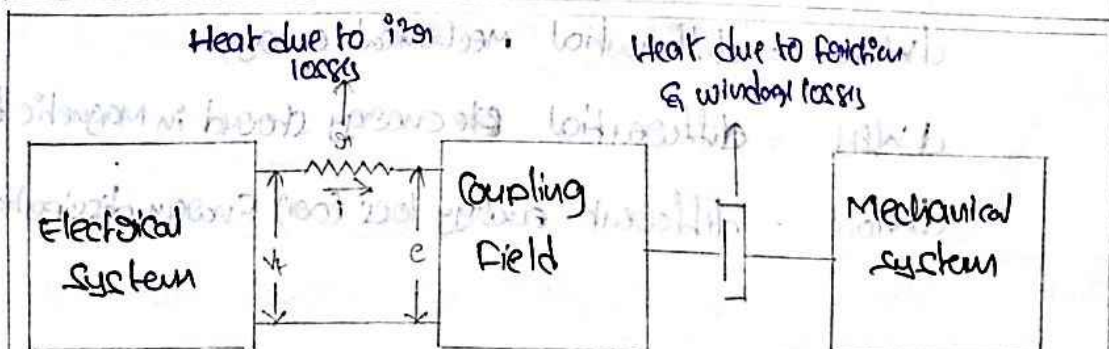 Heat due to i²r
losses
Heat due to friction
& windage losses
r
i
Electrical
system
Vt
e
Coupling
Field
Mechanical
system